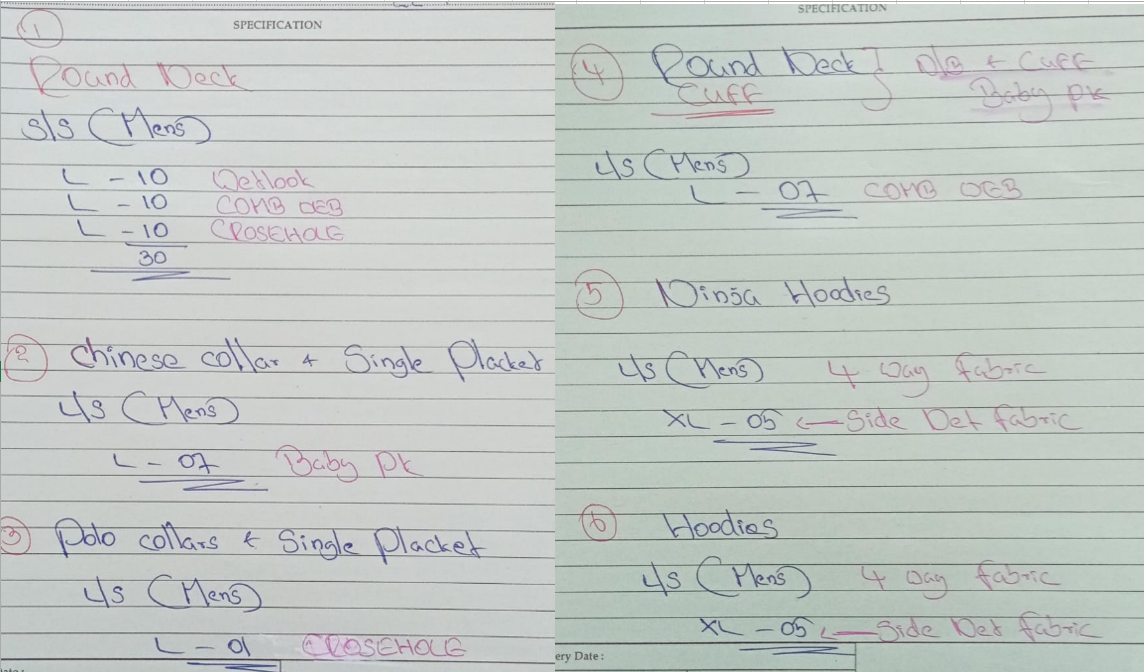 SPECIFICATION
1
Round Neck
S/S (Mens)
L - 10 Wetlook
L - 10 COMB OEB
L - 10 CROSEHOLE
30
2 Chinese collar & Single Placket
L/S (Mens)
L - 07 Baby PK
3 Polo collars & Single Placket
L/S (Mens)
L - 01 CROSEHOLE
SPECIFICATION
4 Round Neck } & Cuff
Cuff Baby PK
L/S (Mens)
L - 07 COMB OEB
5 Ninja Hoodies
L/S (Mens) 4 way fabric
XL - 05 ← Side Net fabric
6 Hoodies
L/S (Mens) 4 way fabric
XL - 05 ← Side Net fabric
ery Date :